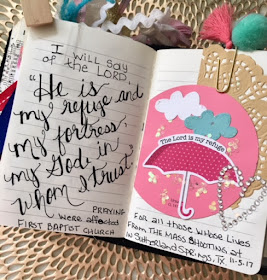 I will say
of the LORD,
"He is
my refuge and
my fortress,
my God in
whom I trust."
PRAYING
were affected
FIRST BAPTIST CHURCH
The Lord is my refuge
FOR all those whose Lives
FROM THE MASS SHOOTING at
in Sutherland Springs, TX 11-5-17